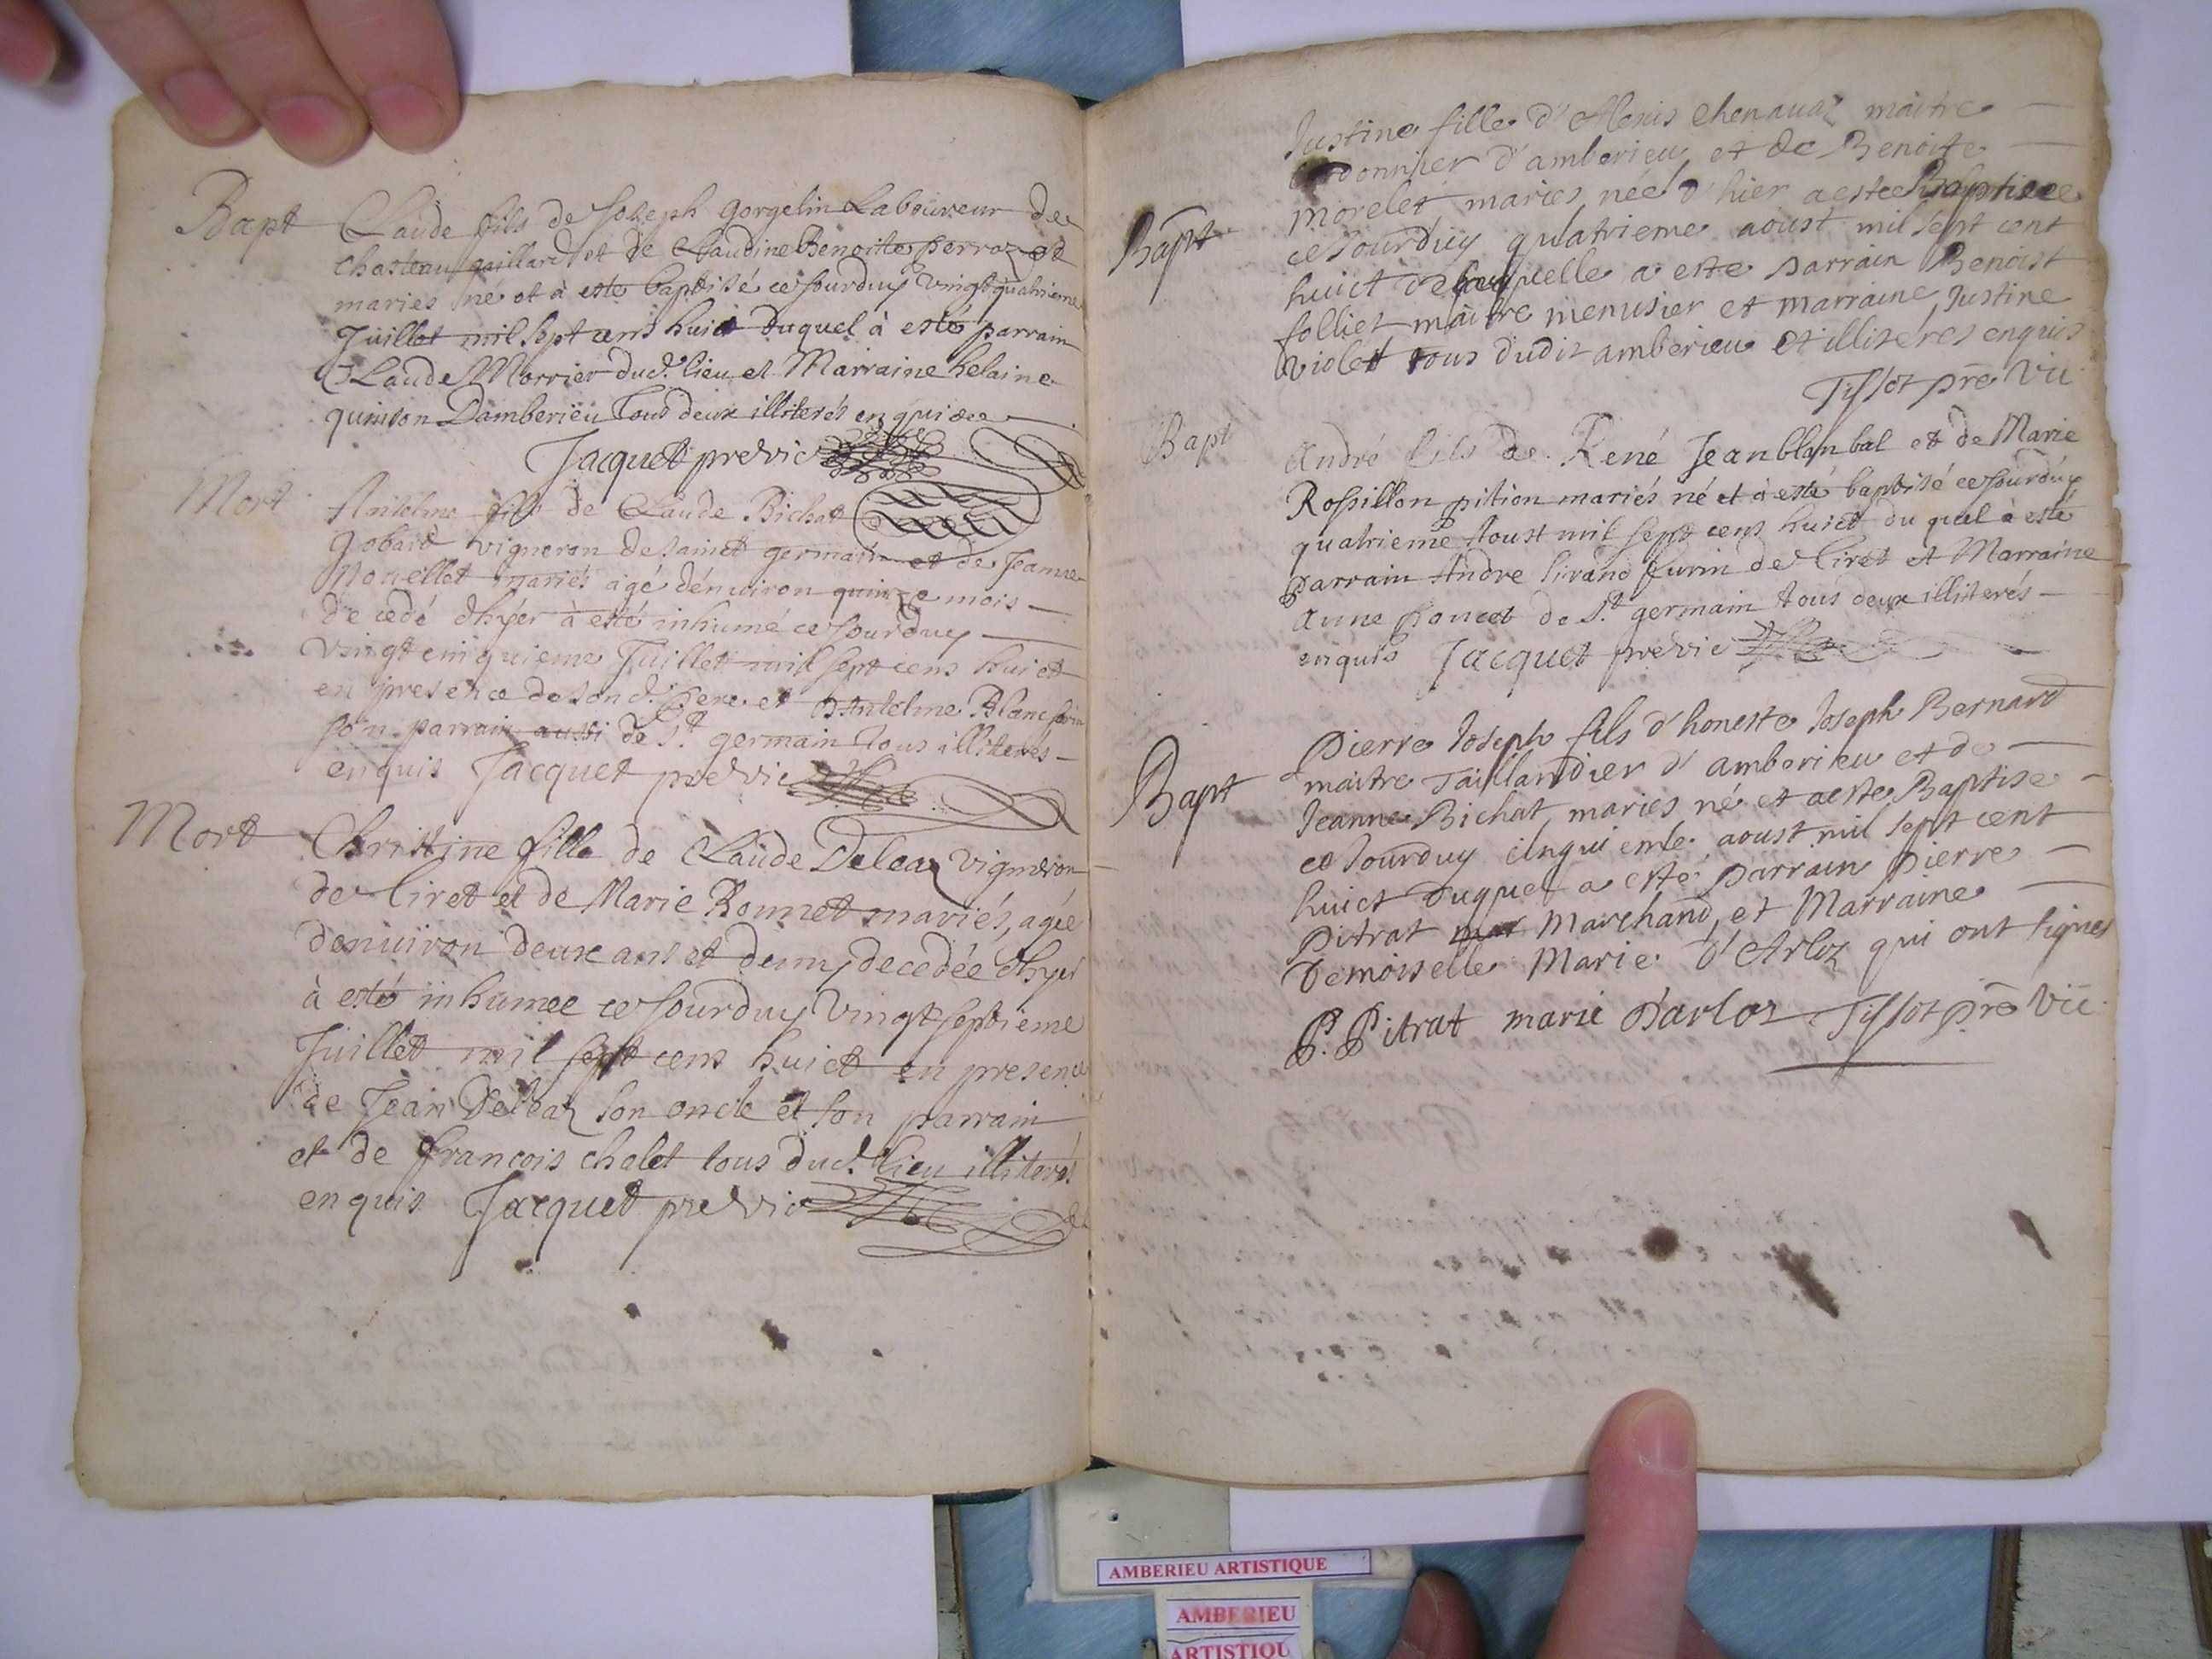 Bapt
Claude fils de Joseph gorgelin Laboureur de
chasteau gaillard et de Claudine Benoite perroz
maries né et à esté baptisé ce Jourduy vingt quatrieme
Juillet mil sept cens huict duquel à esté parrain
Claude Morrier dud. lieu et Marraine helaine
quinson Damberieu tous deux illiterés enquis
Jacquet pre vic
Mort
Antelme fils de Claude Bichat
gobard vigneron de sainct germain et de Jeanne
Nouellet mariés agé dénuiron quinze mois
de cedé dhyer à esté inhumé ce Jourduy
vingt cinquieme Juillet mil sept cens huict
en presence de son d. pere et Antelme Blanc
son parrain aussi de St germain tous illiterés
enquis Jacquet pre vic
Mort
Christine fille de Claude Deleaz vigneron
de Tiret et de Marie Bonnet mariés, agée
denuiron deux ans et demy decedée dhyer
à esté inhumee ce Jourduy vingt septieme
Juillet mil sept cens huict en presence
de Jean Deleaz son oncle et son parrain
et de françois chalet tous dud. lieu illiterés
enquis Jacquet pre vic
Justine fille d'Alexis Chenavaz maitre
cordonnier d'amberieu et de Benoite
Bapt
morelet maries, née d'hier a este Baptisee
ce Jourduy quatrieme aoust mil sept cent
huict de laquelle a este parrain Benoist
folliet maitre menusier et marraine, Justine
violet tous dudit amberieu et illiteres enquis
Tissot pre Vic
Bapt
André fils de René Jeanblanbal et de Marie
Rossillon pition mariés né et à esté baptisé ce Jourduy
quatrieme Aoust mil sept cens huict du quel à esté
parrain Andre Sirand furin de Tiret et Marraine
anne poncet de St. germain tous deux illiterés
enquis Jacquet pre vic
Bapt
pierre Joseph fils d'honeste Joseph Bernard
maitre Taillandier d'amberieu et de
Jeanne Bichat, maries né et a este Baptise
ce Jourduy cinquieme aoust mil sept cent
huict duquel a esté parrain pierre
pitrat marchand, et Marraine
Demoiselle Marie d'Arloz qui ont signés
P. Pitrat marie Darloz Tissot pre Vic
AMBERIEU ARTISTIQUE
AMBERIEU
ARTISTIQU